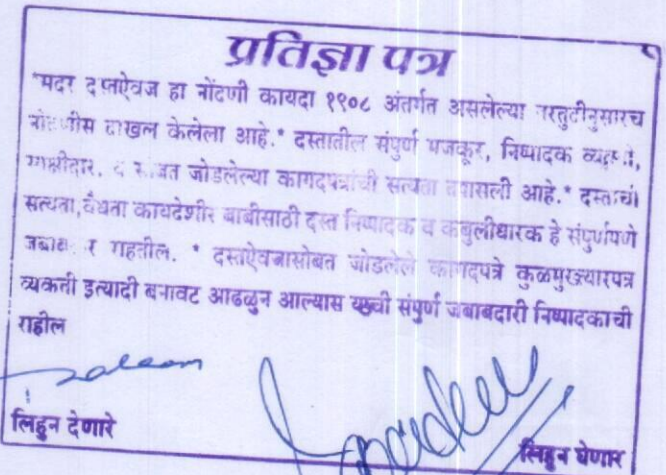 प्रतिज्ञा पत्र
दस्तऐवज हा नोंदणी कायदा १९०८ अंतर्गत असलेल्या तरतुदीनुसारच
नोंदणीस दाखल केलेला आहे.* दस्तातील संपुर्ण मजकूर, निष्पादक व्यक्ती,
साक्षीदार, व सोबत जोडलेल्या कागदपत्रांची सत्यता तपासली आहे.* दस्ताची
सत्यता,वैधता कायदेशीर बाबीसाठी दस्त निष्पादक व कबुलीधारक हे संपुर्णपणे
जबाबदार राहतील. * दस्तऐवजासोबत जोडलेले कागदपत्रे कुळमुखत्यारपत्र
व्यक्ती इत्यादी बनावट आढळुन आल्यास संपुर्ण जबाबदारी निष्पादकाची
राहील
लिहुन देणारे
लिहुन घेणार